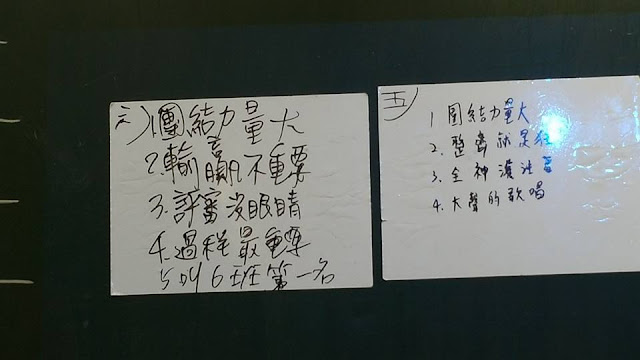 六)1.團結力量大
2.輸贏不重要
3.評審沒眼睛
4.過程最重要
5叫6班第一名
五)
1 團結力量大
2. 整齊就是
3. 全神
4. 大聲的歌唱